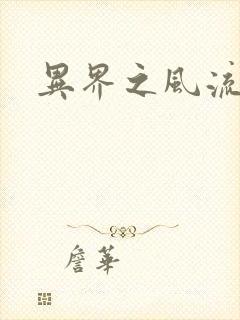 異界之風流
詹華